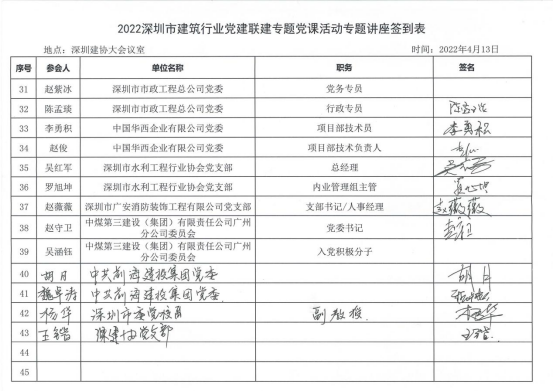 2022深圳市建筑行业党建联建专题党课活动专题讲座签到表
地点：深圳建协大会议室 时间：2022年4月13日
序号 参会人 单位名称 职务 签名
31 赵紫冰 深圳市市政工程总公司党委 党务专员
32 陈孟琰 深圳市市政工程总公司党委 行政专员
33 李勇积 中国华西企业有限公司党委 项目部技术员 李勇积
34 赵俊 中国华西企业有限公司党委 项目部技术负责人
35 吴红军 深圳市水利工程行业协会党支部 总经理
36 罗旭坤 深圳市水利工程行业协会党支部 内业管理组主管
37 赵薇薇 深圳市广安消防装饰工程有限公司党支部 支部书记/人事经理 赵薇薇
38 赵守卫 中煤第三建设（集团）有限责任公司广州
分公司委员会 党委书记
39 吴涵钰 中煤第三建设（集团）有限责任公司广州
分公司委员会 入党积极分子
40 胡月 中共 建投集团党委 胡月
41 中共 建投集团党委
42 杨华 深圳市委党校 副教授 杨华
43 深建协党支部
44
45